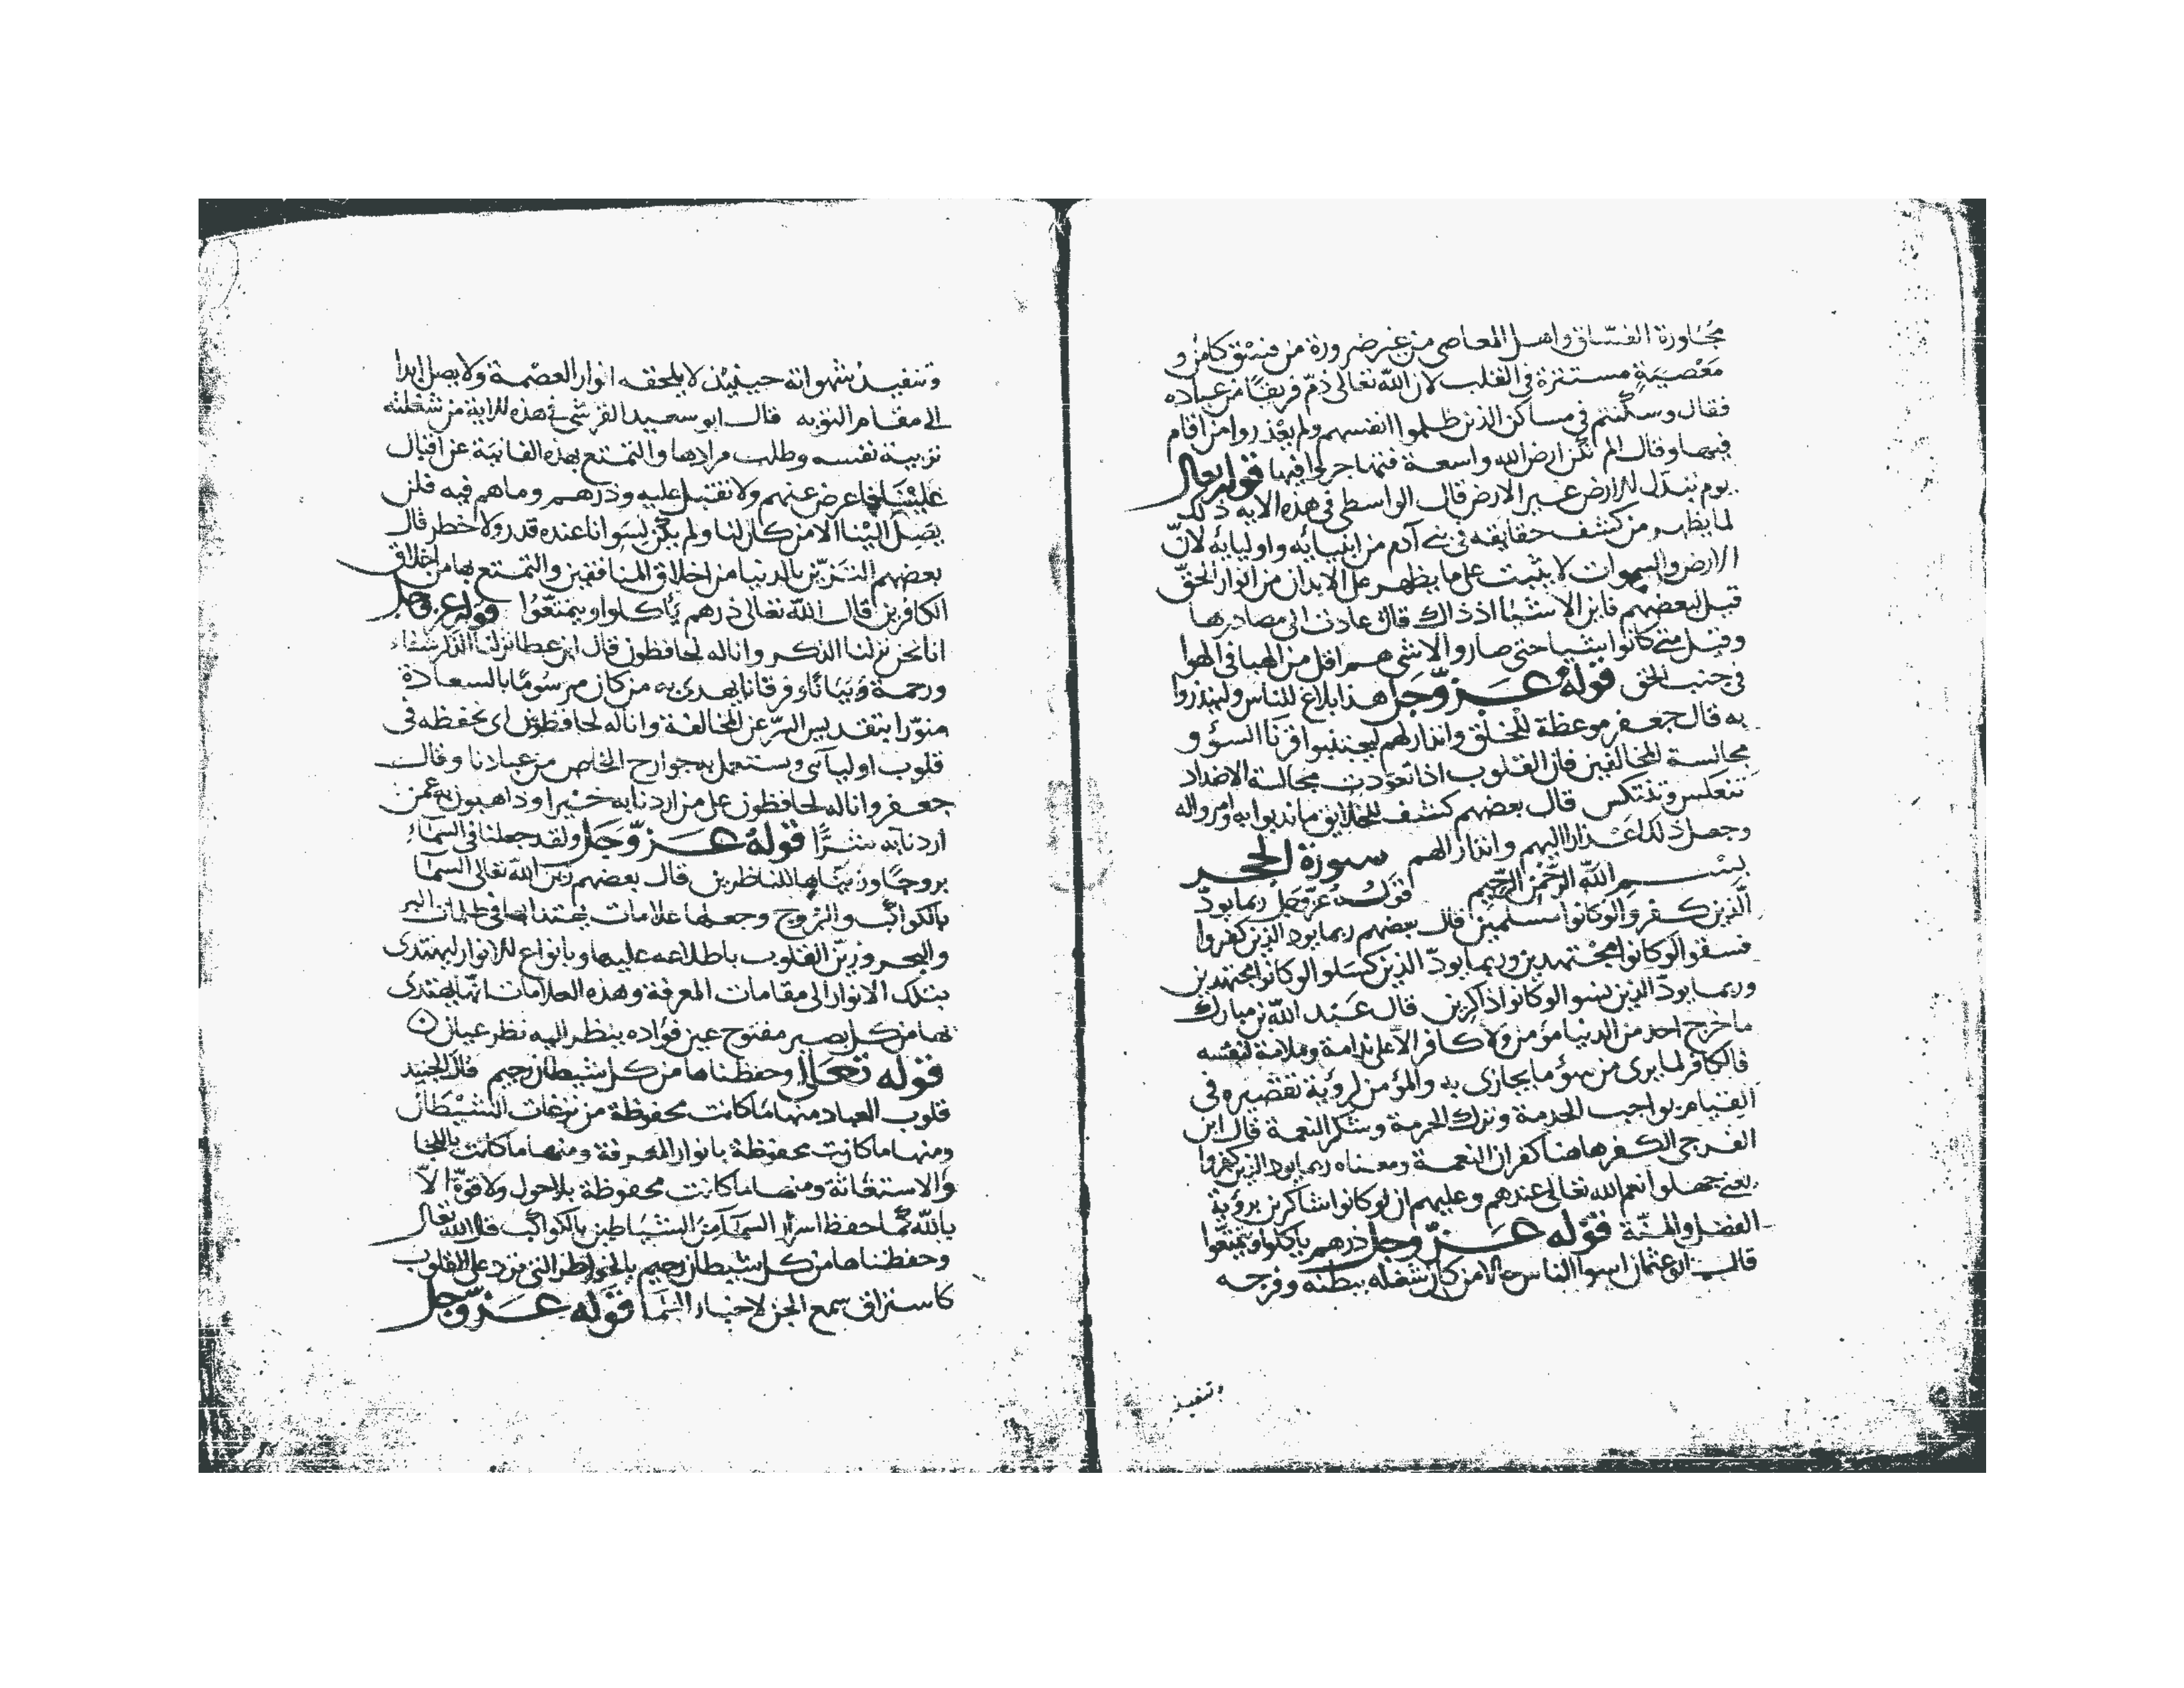 مجاورة الفساق واهل المعاصي من غير ضرورة من فسق كامن و
معصية مستترة في القلب لان الله تعالى ذم فريقا من عباده
فقال وسكنتم في مساكن الذين ظلموا انفسهم ولم يعذر وا من اقام
فيها وقال الم تكن ارض الله واسعة فتهاجروا فيها قوله تعالى
يوم تبدل الارض غير الارض قال الواسطي في هذه الايه ذلك
لما يظهر من كشف حقايقه في بني آدم من انبيائه واوليايه لان
الارض والسموات لا يثبت على ما يظهر على الابدان من انوار الحق
قيل لبعضهم فاين الاشيا اذ ذاك قال عادت الى مصادرها
وقيل متى كانوا شيا حتى صاروا لاشي هم اقل من الهبا في الهوا
في جنب الحق قوله عز وجل هذا بلاغ للناس ولينذروا
به قال جعفر موعظة للخلق وانذار لهم ليجتنبوا قرنا السوء و
مجالسة المخالفين فان القلوب اذا تعودت مجالسة الاضداد
تنعكس وتنتكس قال بعضهم كشف للخلايق ما ندبوا به وامروا له
وجعل ذلك اعذارا اليهم وانذارا لهم سورة الحجر
بسم الله الرحمن الرحيم قوله عز وجل ربما يود
الذين كفروا لو كانوا مسلمين قال بعضهم ربما يود الذين كفروا
فسقوا لو كانوا مجتهدين وربما يود الذين كسلوا لو كانوا مجتهدين
وربما يود الذين نسوا لو كانوا ذاكرين قال عبد الله بن مبارك
ما خرج احد من الدنيا مؤمن ولا كافر الا على ندامة وملامة لنفسه
فالكافر لما يرى من سوء ما يجازى به والمؤمن لرؤية تقصيره في
القيام بواجب الخدمة وترك الحرمة وشكر النعمة قال ابن
الفرجي الكفر هاهنا كفران النعمة ومعناه ربما يود الذين كفروا
يعني جهلوا نعم الله تعالى عندهم وعليهم ان لو كانوا شاكرين برؤية
الفضل والمنة قوله عز وجل ذرهم ياكلوا ويتمتعوا
قال ابو عثمان اسوا الناس حالا من كان شغله ببطنه وفرجه
وتنفيذ
وتنفيذ شهواته حينئذ لا يلحقه انوار العصمة ولا يصل ابدا
الى مقام التوبه قال ابو سعيد القرشي في هذه الاية من شغلته
تربية نفسه وطلب مرادها والتمتع بهذه الفانية عن اقبال
علينا فاعرض عنهم ولا تقبل عليه وذرهم وما هم فيه فلن
يصل الينا الا من كان لنا ولم يكن لسوانا عنده قدر ولا خطر قال
بعضهم التزين بالدنيا من اخلاق المنافقين والتمتع بها من اخلاق
الكافرين قال الله تعالى ذرهم ياكلوا ويتمتعوا قوله عز وجل
انا نحن نزلنا الذكر وانا له لحافظون قال ابن عطا نزلنا الذكر شفاء
ورحمة وبيانا وفرقانا يهدى به من كان موسوما بالسعادة
منورا بتقديس السر عن المخالفة وانا له لحافظون اي نحفظه في
قلوب اوليآئي ويستعمل به جوارح الخاص من عبادنا وقال
جعفر وانا له لحافظون على من اردنا به خيرا وذاهبون به عمن
اردنا به شرا قوله عز وجل ولقد جعلنا في السماء
بروجا وزيناها للناظرين قال بعضهم زين الله تعالى السما
بالكواكب والبروج وجعلها علامات يهتدا بها في ظلمات البر
والبحر وزين القلوب باطلاعه عليها وبانواع الانوار ليهتدى
بتلك الانوار الى مقامات المعرفة وهذه العلامات انما يهتدى
بها من كل بصير مفتوح عين فؤاده ينظر اليه نظر عيان
قوله تعالى وحفظناها من كل شيطان رجيم قال الجنيد
قلوب العباد منها ما كانت محفوظة من نزغات الشيطان
ومنها ما كانت محفوظة بانوار المعرفة ومنها ما كانت بالالتجا
والاستغاثة ومنها ما كانت محفوظة بلا حول ولا قوة الا
بالله كما حفظ اسرار السماء من الشياطين بالكواكب قال الله تعالى
وحفظناها من كل شيطان رجيم بالخواطر التي ترد على القلوب
كاستراق سمع الجن لاخبار السما قوله عز وجل